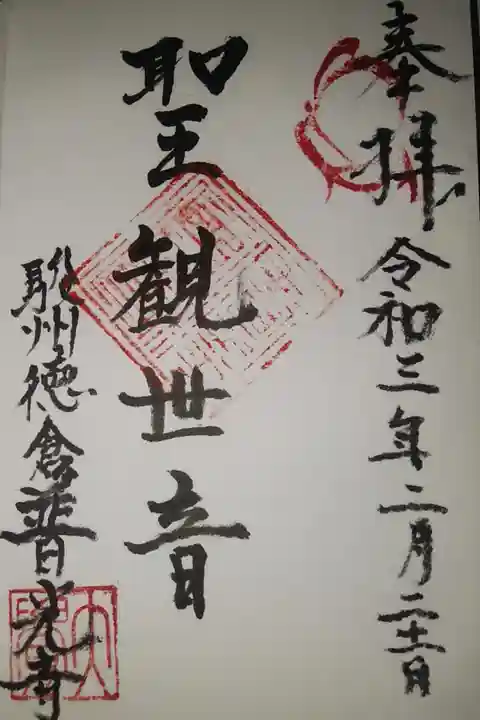 奉拝
令和三年二月二十二日
聖観世音
駿州徳倉普光寺